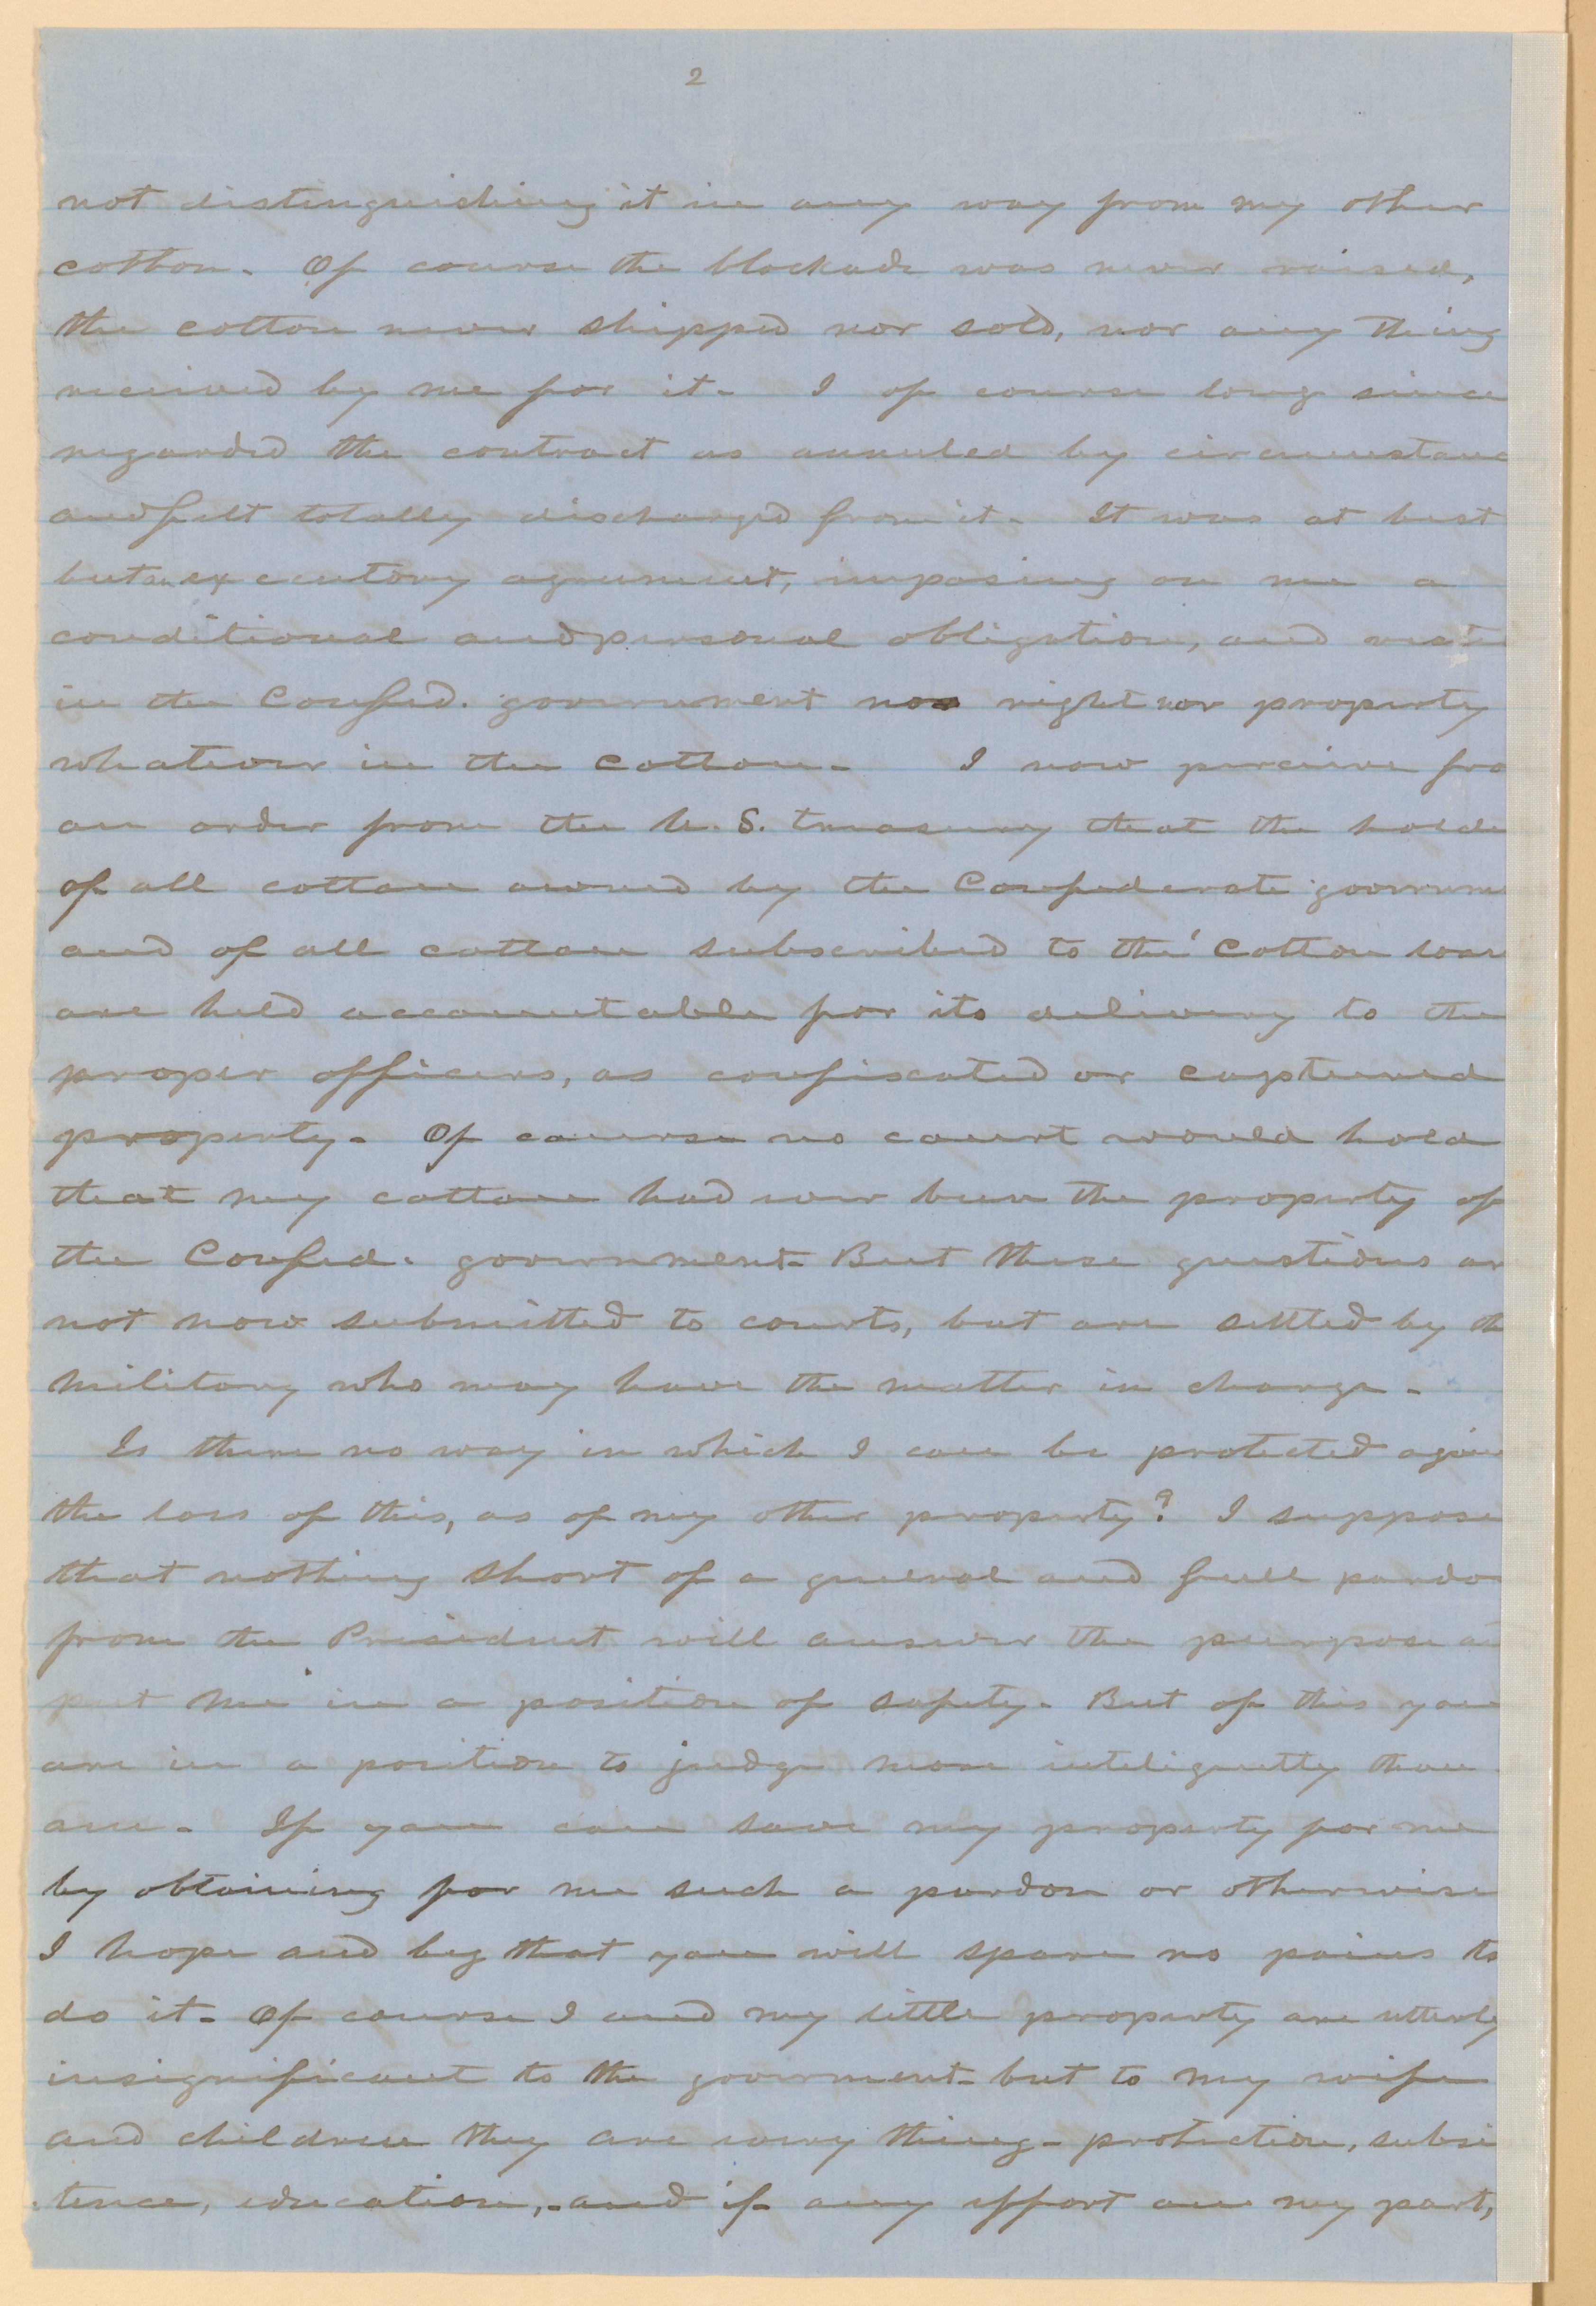 2
not distinguishing it in any way from my other
cotton. Of course the blockade was never raised,
the cotton never shipped nor sold, nor any thing
received by me for it - I of course long since
regarded the contract as annuled by circumstanc
and felt totally discharged from it - It was at best
but an executory agreement, imposing on me a
conditional and personal obligation, and veste
in the Confed. government no right nor property
whatever in the cotton - I now perceive fro
an order from the U. S. treasury that the holde
of all cotton owned by the Confederate governme
and of all cotton subscribed to the Cotton loan
are held accountable for its delivery to the
proper officers, as confiscated or captured
property - Of course no court would hold
that my cotton had ever been the property of
the Confed. government - But these questions ar
not now submitted to courts, but are settled by th
military who may have the matter in charge -
Is there no way in which I can be protected again
the loss of this, as of my other property? I suppose
that nothing short of a general and full pardo
from the President will answer the purpose a
put me in a position of safety - But of this you
are in a position to judge more inteligently than
am - If you can save my property for me
by obtaining for me such a pardon or otherwise
I hope and beg that you will spare no pains to
do it - Of course I and my little property are utterly
insignificant to the goverment - but to my wife
and children they are every thing - protection, subsi
tence, education, - and if any effort on my part,